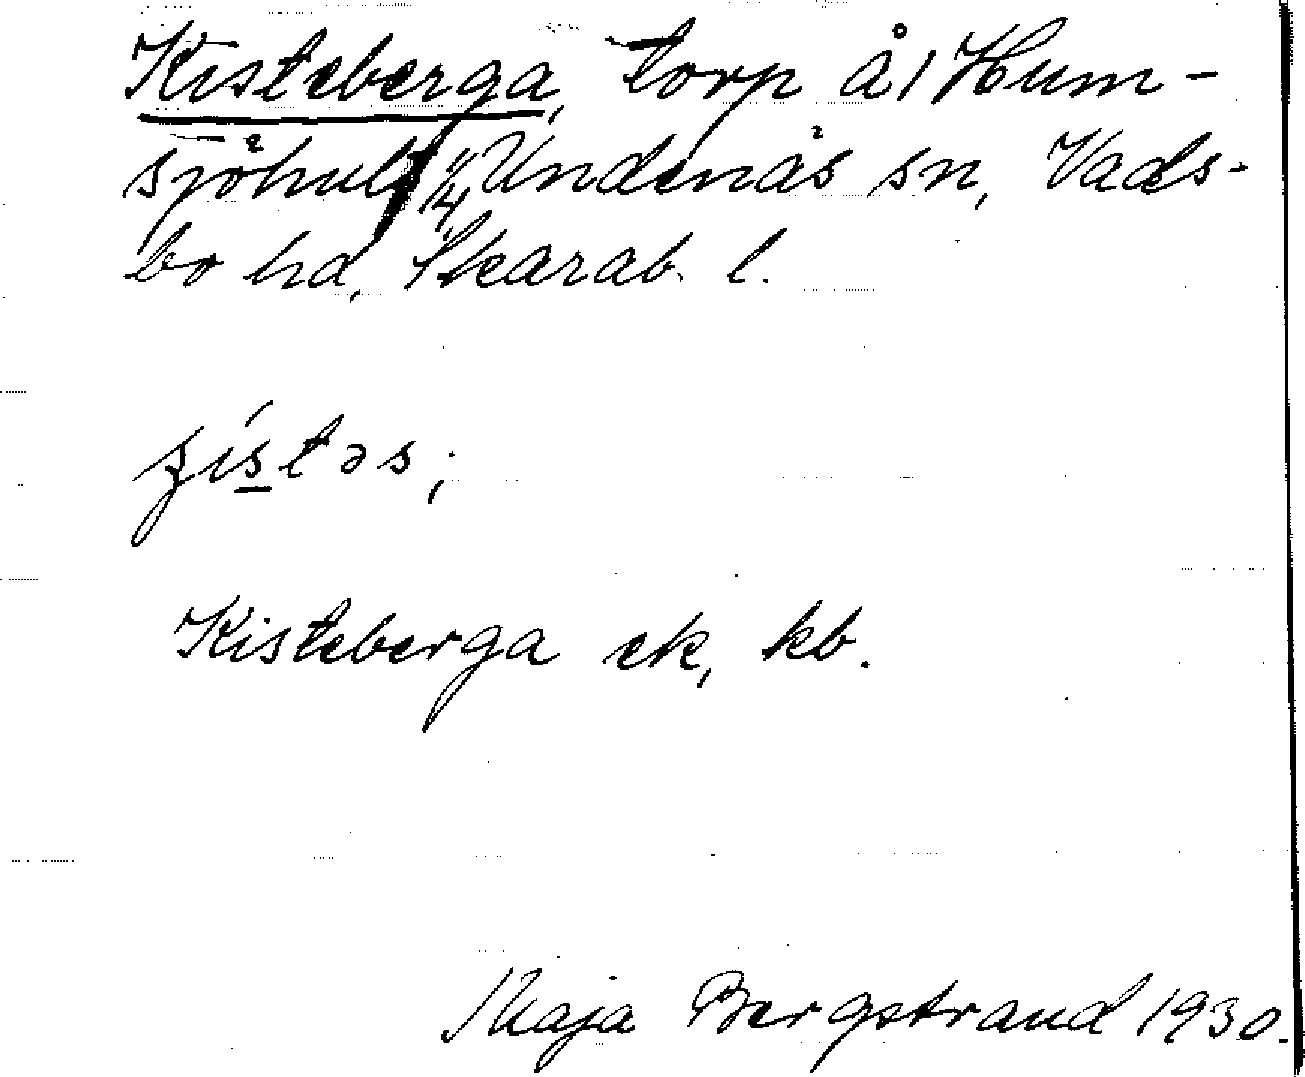 Kisteberga, torp å 1 Hum-
sjöhult 1/4, Undenäs sn, Vads-
bo hd, Skarab. l.
Kisteberga ek, kb.
Maja Bergstrand 1930.